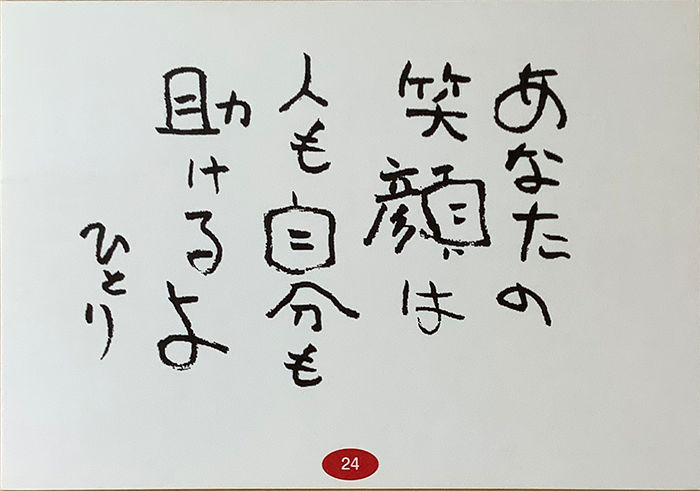 あなたの
笑顔は
人も自分も
助けるよ
ひとり
24